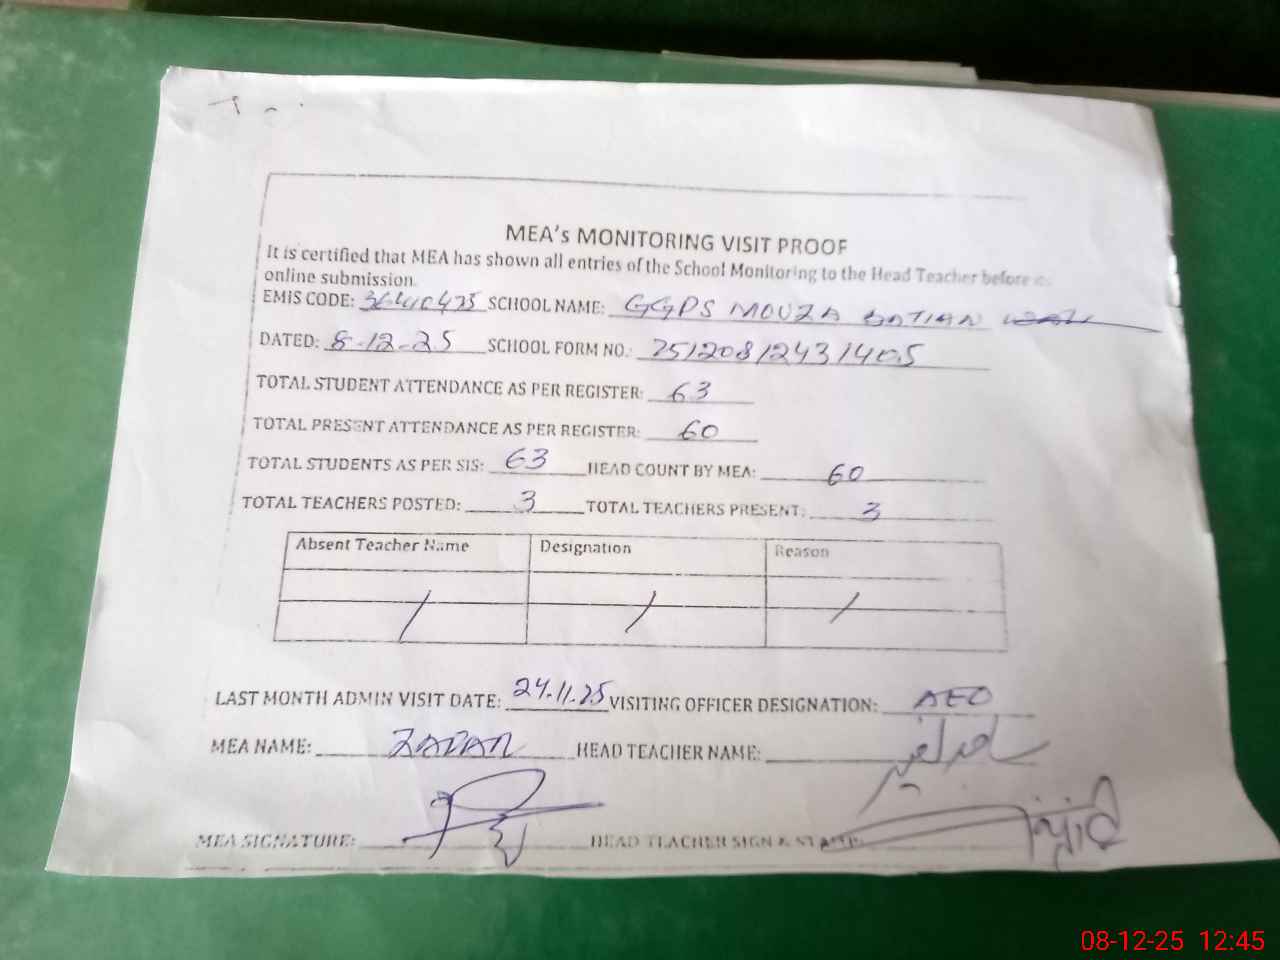 MEA's MONITORING VISIT PROOF
It is certified that MEA has shown all entries of the School Monitoring to the Head Teacher before its
online submission.
EMIS CODE: 36410475 SCHOOL NAME: GGPS MOUZA
DATED: 8-12-25 SCHOOL FORM NO.: 25120812431405
TOTAL STUDENT ATTENDANCE AS PER REGISTER: 63
TOTAL PRESENT ATTENDANCE AS PER REGISTER: 60
TOTAL STUDENTS AS PER SIS: 63 HEAD COUNT BY MEA: 60
TOTAL TEACHERS POSTED: 3 TOTAL TEACHERS PRESENT: 3
Absent Teacher Name Designation Reason
/ / /
LAST MONTH ADMIN VISIT DATE: 24.11.25 VISITING OFFICER DESIGNATION: AEO
MEA NAME: HEAD TEACHER NAME:
MEA SIGNATURE: HEAD TEACHER SIGN & STAMP:
08-12-25 12:45